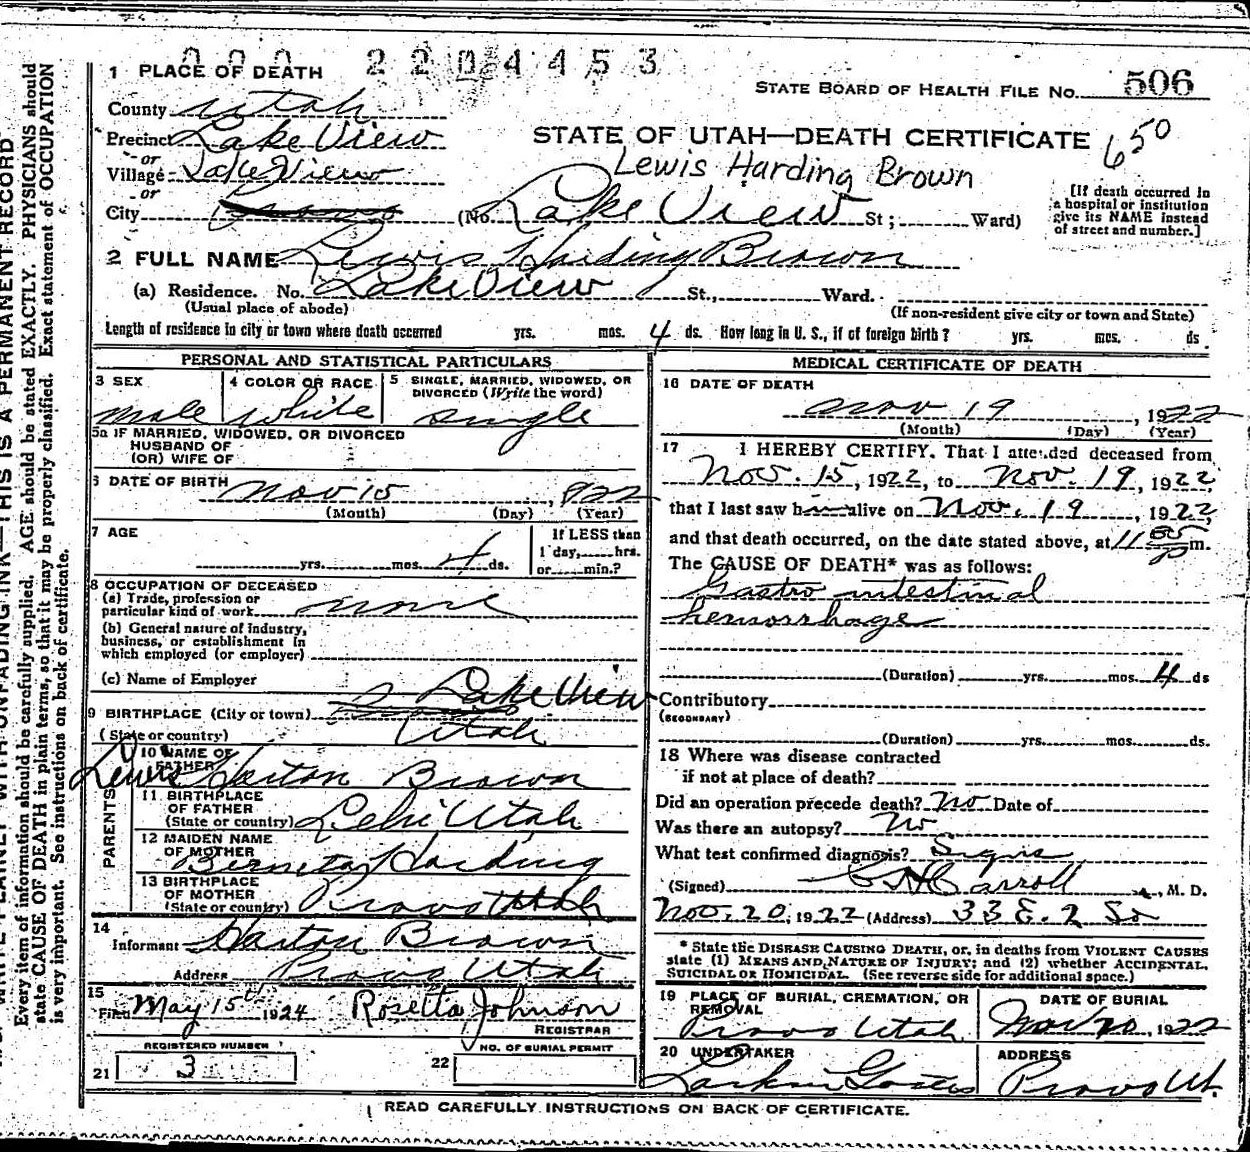 000 2204453
1 PLACE OF DEATH
STATE BOARD OF HEALTH FILE NO. 506
County Utah
Precinct Lake View
STATE OF UTAH—DEATH CERTIFICATE 650
or
Village Lake View
Lewis Harding Brown
or
City Provo (No. Lake View St; Ward)
[If death occurred in
a hospital or institution
give its NAME instead
of street and number.]
2 FULL NAME Lewis Harding Brown
(a) Residence. No. Lake View St., Ward.
(Usual place of abode)
(If non-resident give city or town and State)
Length of residence in city or town where death occurred yrs. mos. 4 ds. How long in U. S., if of foreign birth? yrs. mos. ds.
PERSONAL AND STATISTICAL PARTICULARS
3 SEX
male
4 COLOR OR RACE
white
5 SINGLE, MARRIED, WIDOWED, OR
DIVORCED (Write the word)
single
5a IF MARRIED, WIDOWED, OR DIVORCED
HUSBAND OF
(OR) WIFE OF
6 DATE OF BIRTH
Nov 15, 1922
(Month) (Day) (Year)
7 AGE
yrs. mos. 4 ds.
If LESS than
1 day, hrs.
or min.?
8 OCCUPATION OF DECEASED
(a) Trade, profession or
particular kind of work none
(b) General nature of industry,
business, or establishment in
which employed (or employer)
(c) Name of Employer
9 BIRTHPLACE (City or town) Lake View
(State or country) Utah
10 NAME OF
FATHER
Lewis Harton Brown
PARENTS
11 BIRTHPLACE
OF FATHER
(State or country) Lehi Utah
12 MAIDEN NAME
OF MOTHER
Berneta Harding
13 BIRTHPLACE
OF MOTHER
(State or country) Provo Utah
14
Informant Harton Brown
Address Provo Utah
15
Filed May 15th 1924 Rosetta Johnson
REGISTRAR
REGISTERED NUMBER
21 3
NO. OF BURIAL PERMIT
22
MEDICAL CERTIFICATE OF DEATH
16 DATE OF DEATH
Nov 19, 1922
(Month) (Day) (Year)
17 I HEREBY CERTIFY, That I attended deceased from
Nov. 15, 1922, to Nov. 19, 1922,
that I last saw him alive on Nov. 19, 1922,
and that death occurred, on the date stated above, at 11 m.
The CAUSE OF DEATH* was as follows:
Gastro intestinal
hemorrhage
(Duration) yrs. mos. 4 ds
Contributory
(SECONDARY)
(Duration) yrs. mos. ds.
18 Where was disease contracted
if not at place of death?
Did an operation precede death? No Date of
Was there an autopsy? No
What test confirmed diagnosis? Signs
(Signed) Carroll, M. D.
Nov. 20, 1922 (Address) 33 E. 2 So
* State the DISEASE CAUSING DEATH, or, in deaths from VIOLENT CAUSES
state (1) MEANS AND NATURE OF INJURY; and (2) whether ACCIDENTAL,
SUICIDAL or HOMICIDAL. (See reverse side for additional space.)
19 PLACE OF BURIAL, CREMATION, OR
REMOVAL
Provo Utah
DATE OF BURIAL
Nov 20, 1922
20 UNDERTAKER
ADDRESS
Provo Ut.
READ CAREFULLY INSTRUCTIONS ON BACK OF CERTIFICATE.
Every item of information should be carefully supplied. AGE should be stated EXACTLY. PHYSICIANS should
state CAUSE OF DEATH in plain terms, so that it may be properly classified. Exact statement of OCCUPATION
is very important. See instructions on back of certificate.
WRITE PLAINLY WITH UNFADING INK—THIS IS A PERMANENT RECORD